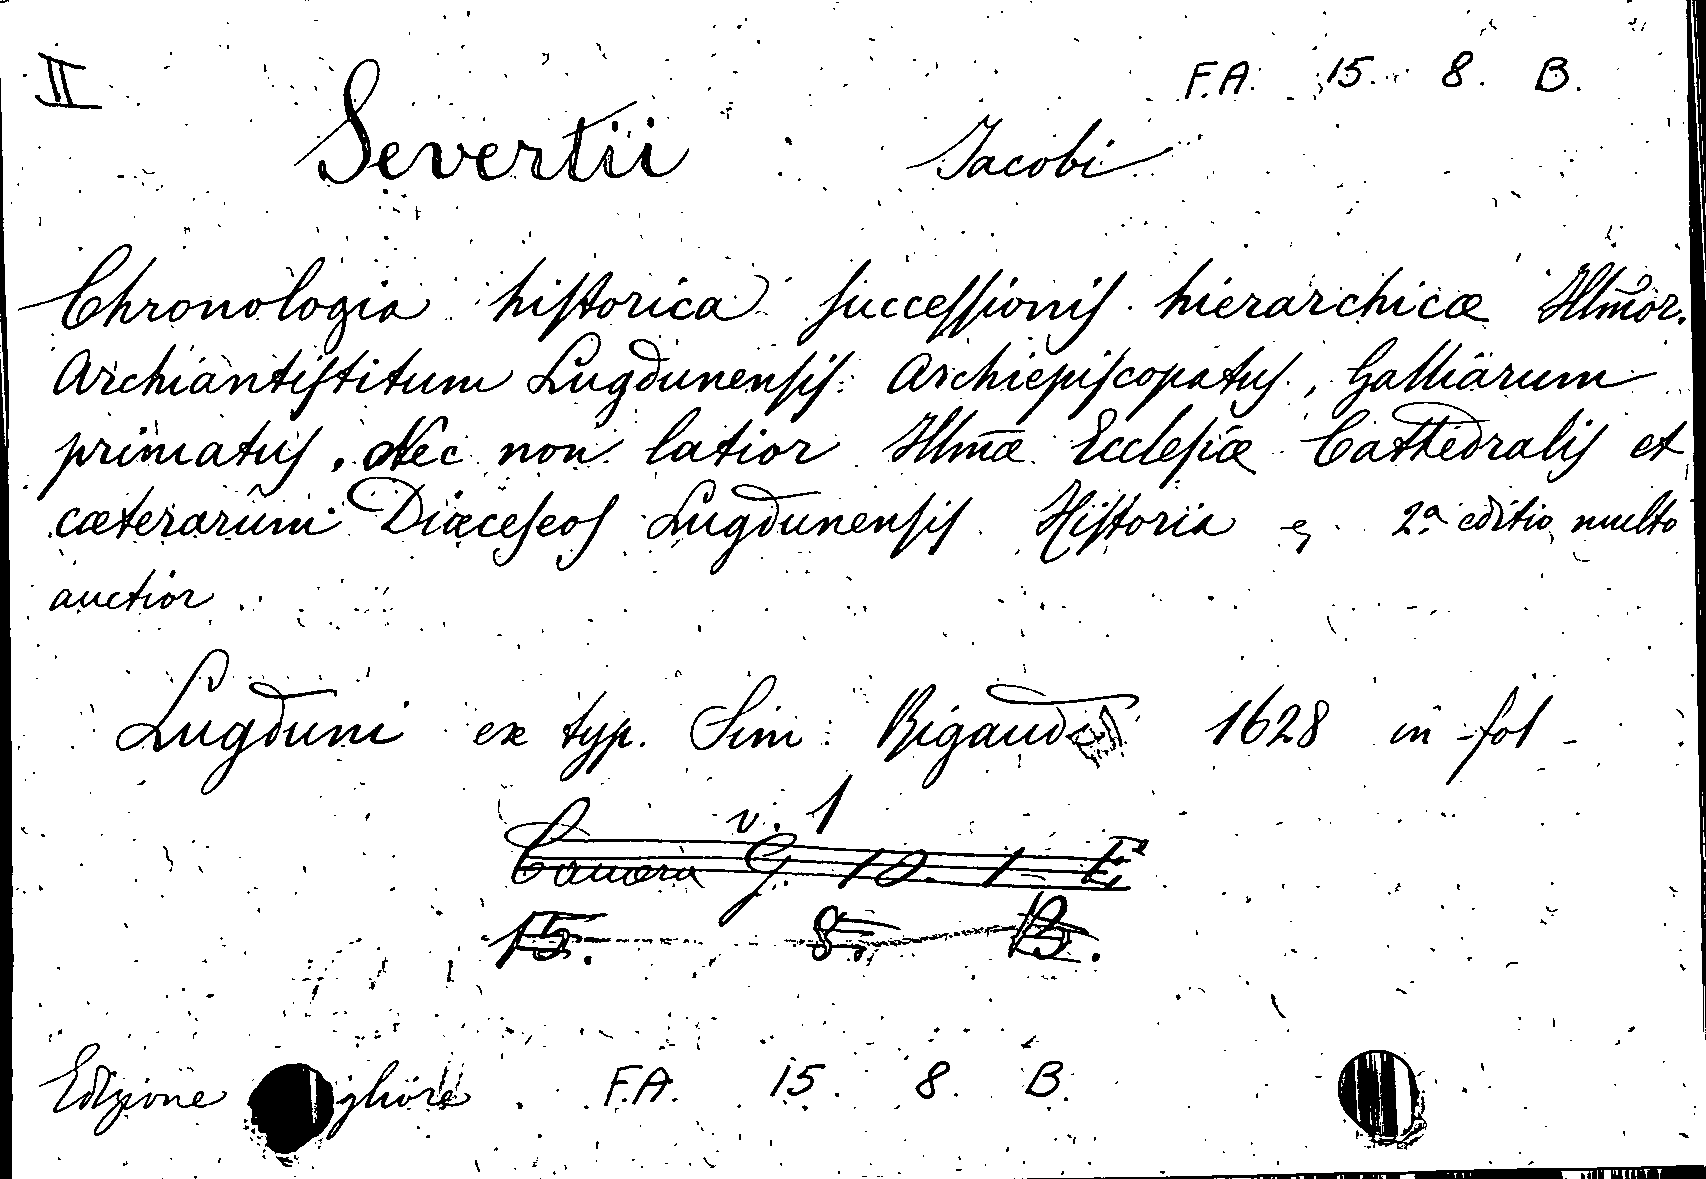 II F.A. 15. 8. B.
Severtii Jacobi
Chronologia hiſtorica ſucceſſioniſ hierarchicæ Illm̄or.
Archiantiſtitum Lugdunenſiſ Archiepiſcopatuſ, Galliarum
primatuſ. Nec non latior Illmæ Eccleſiæ Cathedraliſ et
cæterarum Diœceſeoſ Lugdunenſiſ Hiſtoria 2ª editio multo
auctior
Lugduni ex typ. Sim. Rigaud 1628 in-fol-
v. 1
Camera G. 10. 1 E
15. 8. B.
Edizione F.A. 15 8. B.